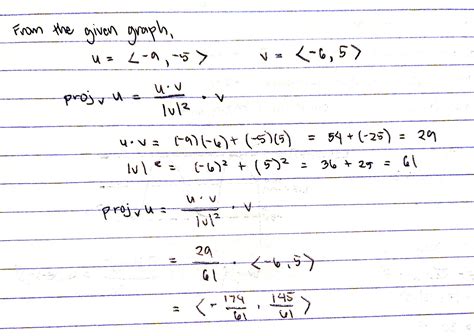 From the given graph,
u = <-9, -5> v = <-6, 5>
proj_v u = u·v / |v|² · v
u·v = (-9)(-6) + (-5)(5) = 54 + (-25) = 29
|v|² = (-6)² + (5)² = 36 + 25 = 61
proj_v u = u·v / |v|² · v
= 29/61 · <-6, 5>
= <-174/61, 145/61>